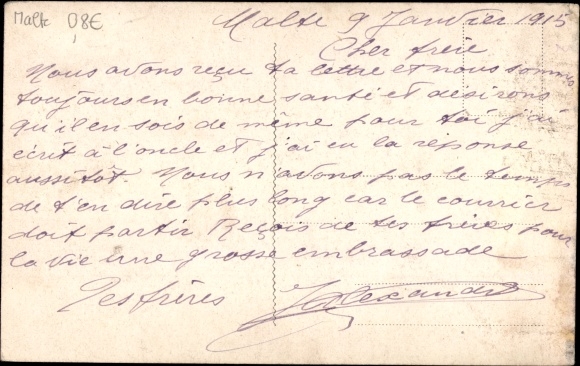 Malte 08€
Malte 9 Janvier 1915
Cher frère
Nous avons reçu ta lettre et nous sommes
toujours en bonne santé et desirons
qu'il en sois de même pour toi j'ai
écrit à l'oncle et j'ai eu la réponse
aussitot. Nous n'avons pas le temps
de t'en dire plus long car le courrier
doit partir Reçois de tes frères pour
la vie une grosse embrassade
Tes frères
Alexandre